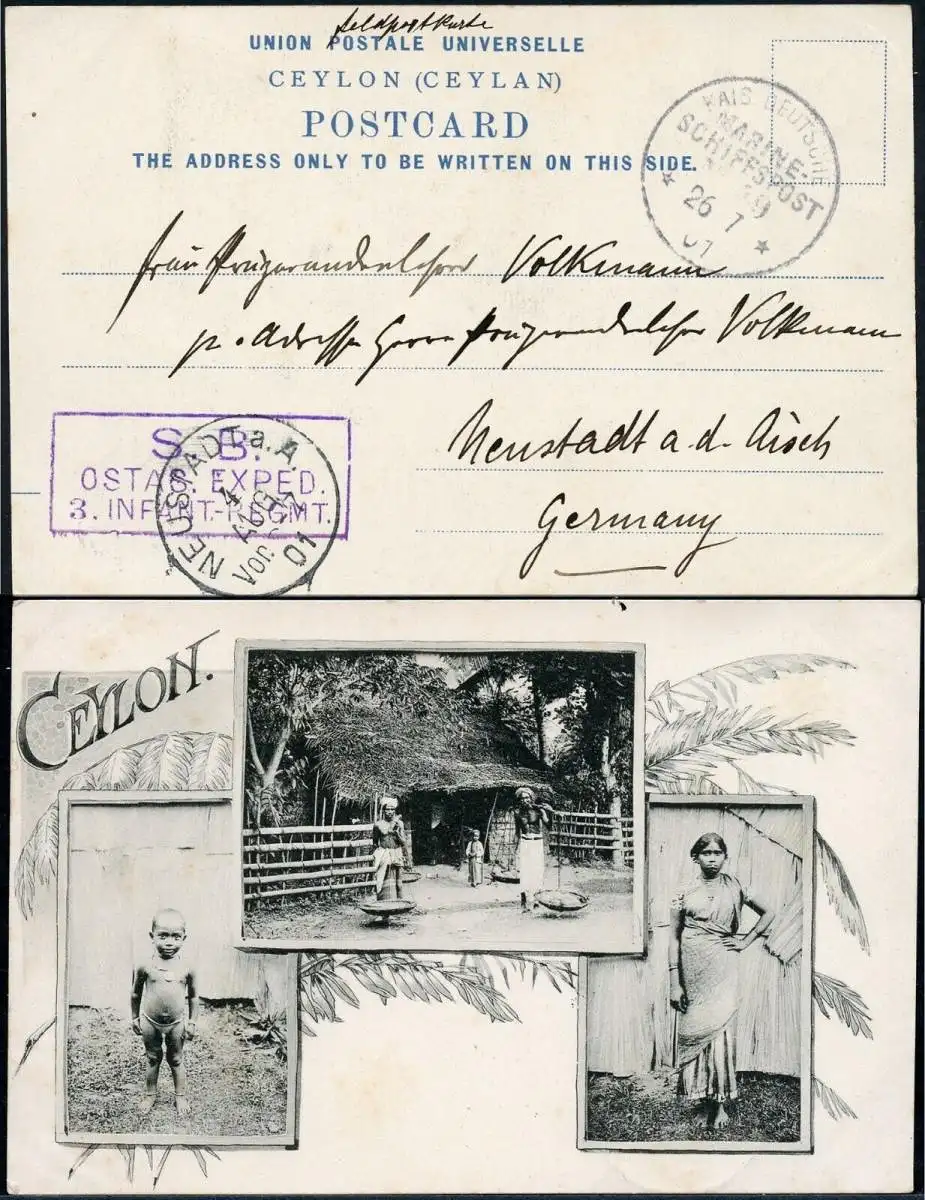 Feldpostkarte
UNION POSTALE UNIVERSELLE
CEYLON (CEYLAN)
POSTCARD
THE ADDRESS ONLY TO BE WRITTEN ON THIS SIDE.
KAIS. DEUTSCHE
MARINE-
SCHIFFSPOST
26 7
01
Frau Präparandenlehrer Volkmann
p. Adresse Herrn Präparandenlehrer Volkmann
Neustadt a. d. Aisch
Germany
S. B.
OSTAS. EXPED.
3. INFANT.-REGMT.
NEUSTADT a. A.
4
AUG.
Vor.
01
CEYLON.